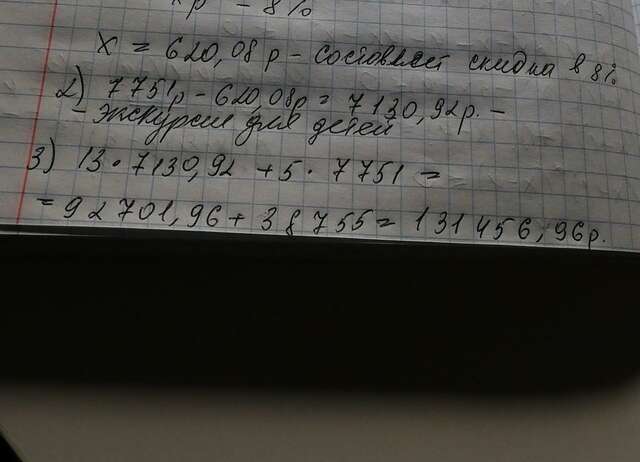 хр - 8%
х = 620,08 р - составляет скидка в 8%
2) 7751р - 620,08р = 7130,92р. -
- экскурсия для детей
3) 13 · 7130,92 + 5 · 7751 =
= 92701,96 + 38755 = 131456,96р.